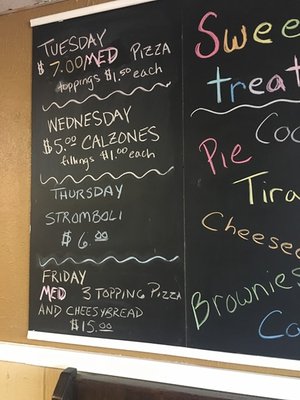 TUESDAY
$ 7.00 MED PIZZA
toppings $1.50 each
WEDNESDAY
$5.00 CALZONES
fillings $1.00 each
THURSDAY
STROMBOLI
$ 6.00
FRIDAY
MED 3 TOPPING PIZZA
AND CHEESYBREAD
$15.00
Sweet
treat
Coo
Pie
Tira
Cheesec
Brownies